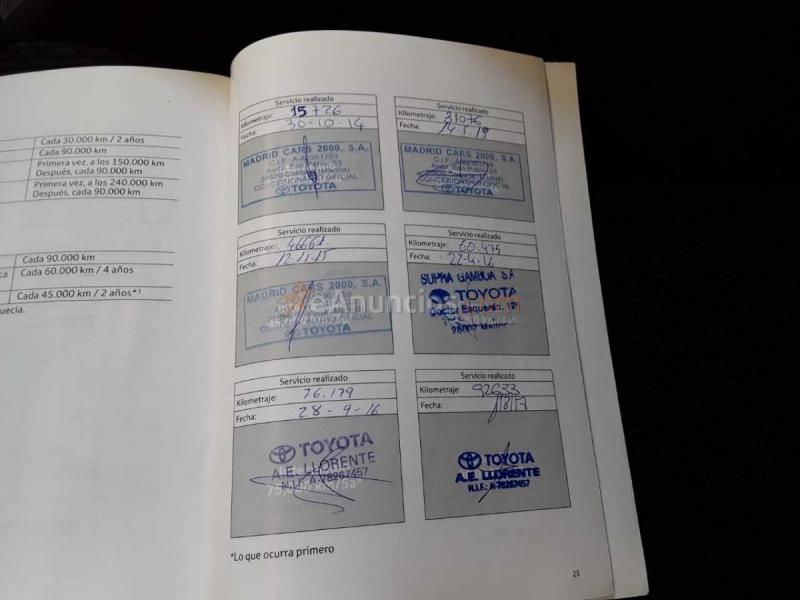 Cada 30.000 km / 2 años
Cada 90.000 km
Primera vez, a los 150.000 km
Después, cada 90.000 km
Primera vez, a los 240.000 km
Después, cada 90.000 km
Cada 90.000 km
Cada 60.000 km / 4 años
Cada 45.000 km / 2 años*³
uecia.
Servicio realizado
Kilometraje: 15726
Fecha: 30-10-14
MADRID CARS 2000, S.A.
CONCESIONARIO OFICIAL
TOYOTA
Servicio realizado
Kilometraje: 31076
Fecha:
MADRID CARS 2000, S.A.
CONCESIONARIO OFICIAL
TOYOTA
Servicio realizado
Kilometraje: 46661
Fecha: 12.11.15
MADRID CARS 2000, S.A.
CONCESIONARIO OFICIAL
TOYOTA
Servicio realizado
Kilometraje: 60.475
Fecha: 22-4-16
SUPRA GAMBOA S.A
TOYOTA
Doctor Esquerdo,
28007
eAnuncios.com
Servicio realizado
Kilometraje: 76.179
Fecha: 28-9-16
TOYOTA
A.E. LLORENTE
N.I.F. A-78267457
Servicio realizado
Kilometraje: 92633
Fecha:
TOYOTA
A.E. LLORENTE
N.I.F. A-78267457
*Lo que ocurra primero
25